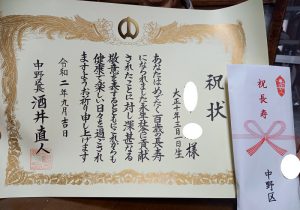 祝状
様
大正十年二月一日生
あなたはめでたく百歳の長寿
になられました永年社会に貢献
されたことに対し深甚なる
敬意を表するとともにこれからも
健康で楽しい日々を過ごされ
ますようお祈り申し上げます
令和二年九月吉日
中野区長 酒井直人
祝長寿
中野区